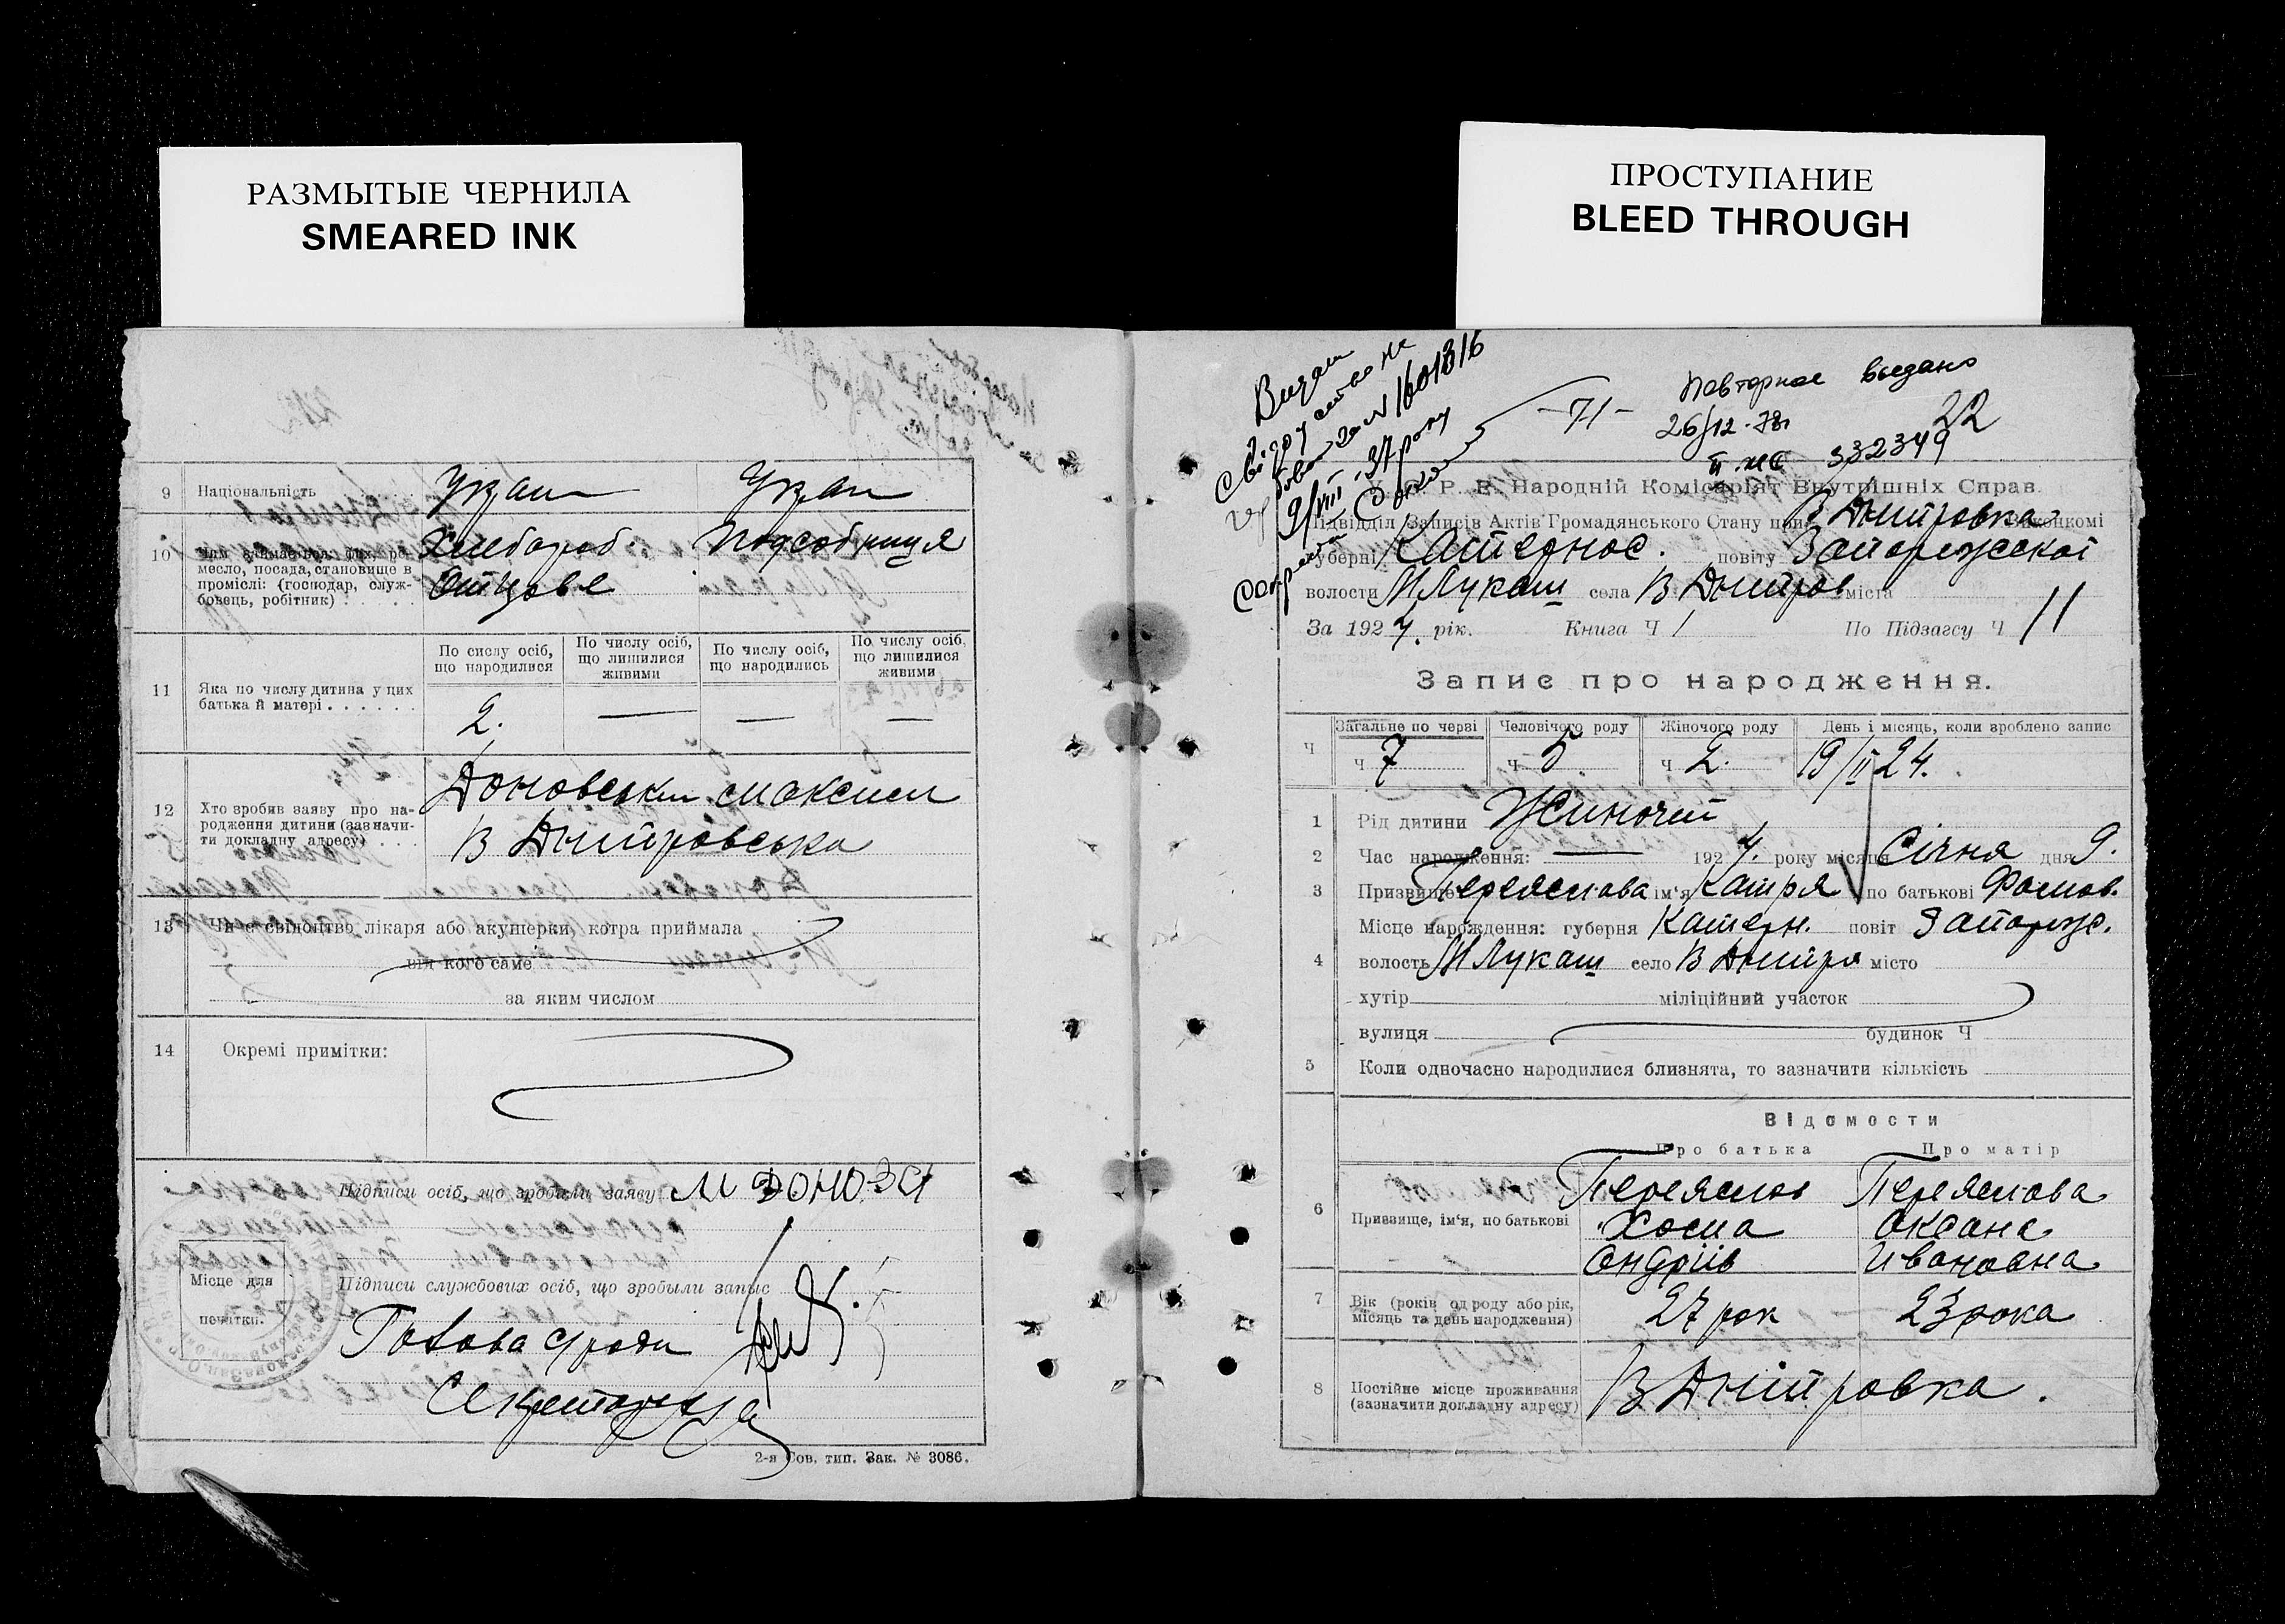 РАЗМЫТЫЕ ЧЕРНИЛА
SMEARED INK
ПРОСТУПАНИЕ
BLEED THROUGH
9 Національність Укра Укра
10 Чим займається: фах, ре-
месло, посада, становище в
проміслі: (господар, служ-
бовець, робітник)
Хлебороб. Подсобниця
11 Яка по числу дитина у цих
батька й матері
По сислу осіб,
що народилися
По числу осіб,
що лишилися
живими
По числу осіб,
що народились
По числу осіб,
що лишилися
живими
2. — — —
12 Хто зробив заяву про на-
родження дитини (зазначи-
ти докладну адресу)
Доновськи Максим
В Дмитровська
13 Чи є свідоцтво лікаря або акушерки, котра приймала
від кого саме
за яким числом
14 Окремі примітки:
Підписи осіб, що зробили заяву
Місце для
печатки.
Підписи службових осіб, що зробыли запис
Голова
Секретарь
2-я Сов. тип. Зак. № 3086.
Видан
№ 1601316
9/VIII-37 року
-71-
Повторное выдано
26/12-78г
332349
22
У. С. Р. Р. Народній Комісаріят Внутрішніх Справ.
Підвідділ Записів Актів Громадянського Стану при В Дмитровка Виконкомі
губерні Катеринос. повіту Запорожської
волости М Лукаш села В Дмитров міста
За 1924. рік. Книга Ч 1 По Підзагсу Ч 11
Запис про народження.
Ч Загальне по черві Человічого роду Жіночого роду День і місяць, коли зроблено запис
ч 7 ч 5 ч 2. 19/II 24.
1 Рід дитини Жиночей
2 Час народження: — 1924. року місяця Січня дня 9.
3 Призвище Переяслова ім'я Катря по батькові Фомов.
Місце нарождення: губерня Катерн. повіт Запорож.
4 волость М Лукаш село В Дмитро місто
хутір міліційний участок
вулиця будинок Ч
5 Коли одночасно народилися близнята, то зазначити кількість
Відомости
Про батька Про матір
6 Призвище, ім'я, по батькові
Переяслов Переяслова
Хома Оксана
Ондріїв Ивановна
7 Вік (років од роду або рік,
місяць та день народження)
27 рок 23 рока
8 Постійне місце проживання
(зазначити докладну адресу)
В Дмитровка.